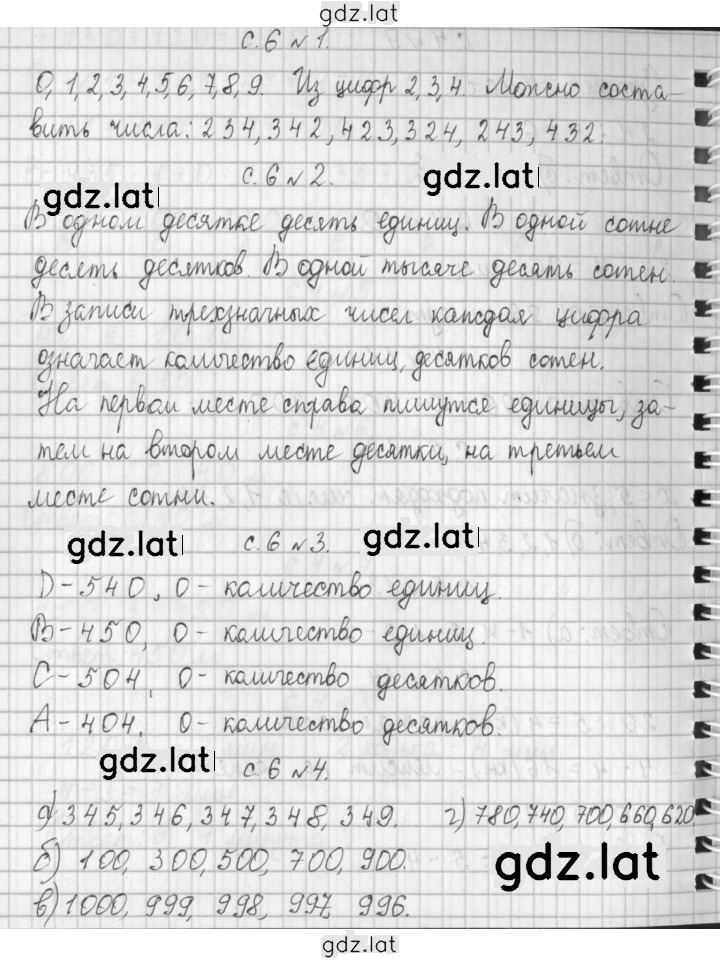 gdz.lat
с.6 №1.
0, 1, 2, 3, 4, 5, 6, 7, 8, 9. Из цифр 2, 3, 4. Можно соста-
вить числа: 234, 342, 423, 324, 243, 432.
с.6 №2.
gdz.lat gdz.lat
В одном десятке десять единиц. В одной сотне
десять десятков. В одной тысяче десять сотен.
В записи трехзначных чисел каждая цифра
означает количество единиц, десятков сотен.
На первом месте справа пишутся единицы, за-
тем на втором месте десятки, на третьем
месте сотни.
gdz.lat с.6 №3. gdz.lat
D - 540, 0 - количество единиц.
B - 450, 0 - количество единиц.
C - 504, 0 - количество десятков.
A - 404, 0 - количество десятков.
gdz.lat с.6 №4.
а) 345, 346, 347, 348, 349. г) 780, 740, 700, 660, 620
б) 100, 300, 500, 700, 900.
gdz.lat
в) 1000, 999, 998, 997, 996.
gdz.lat